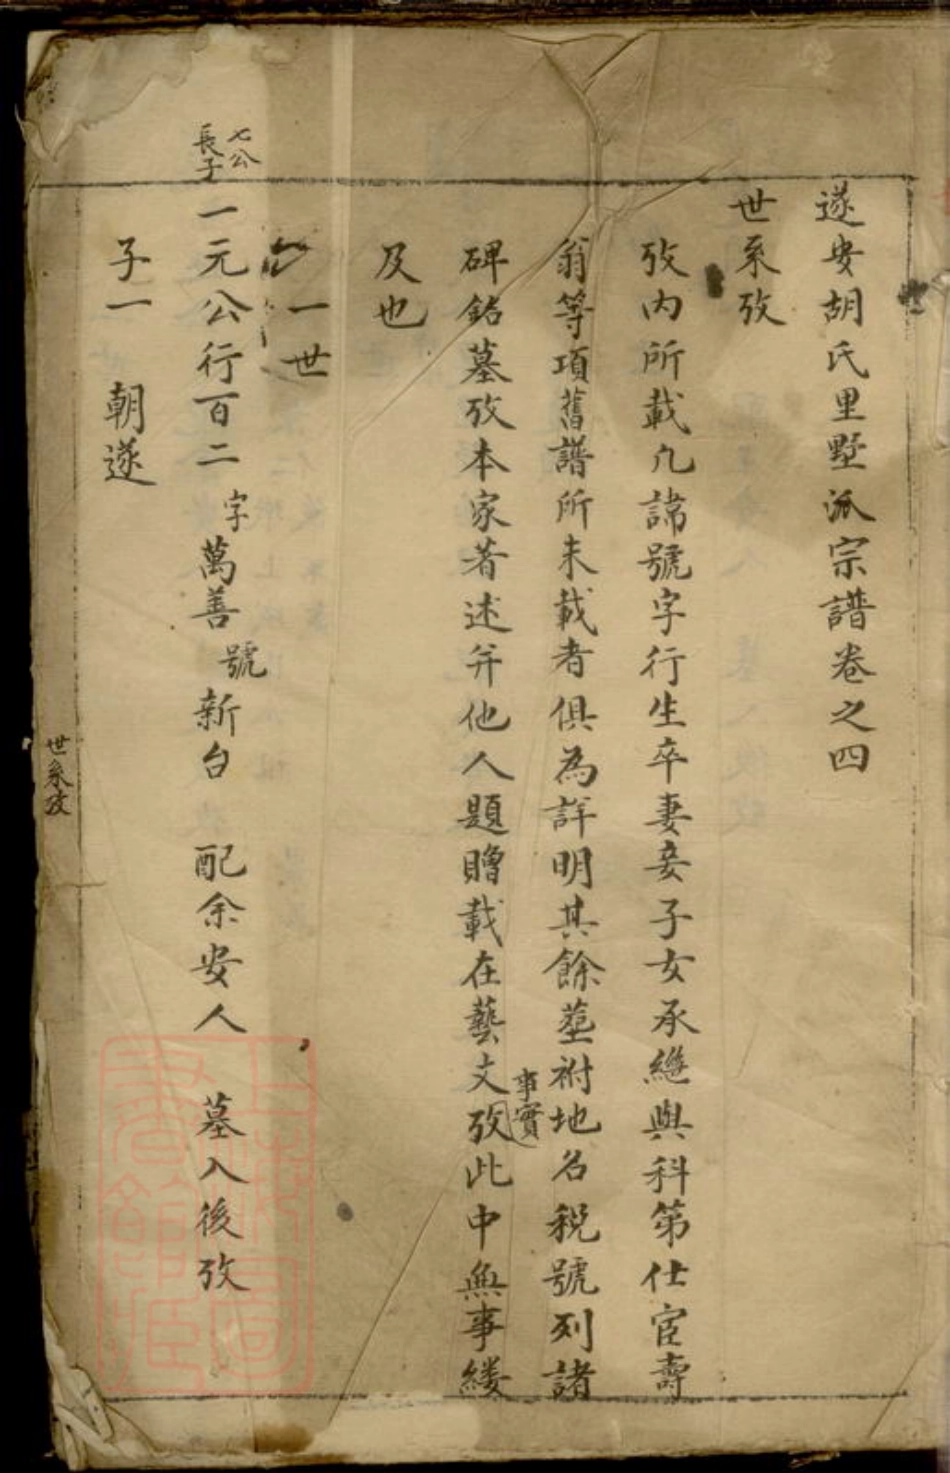 遂安胡氏里墅派宗譜卷之四
世系攷
攷內所載凡諱號字行生卒妻妾子女承繼與科第仕宦壽
翁等項舊譜所未載者俱為詳明其餘塟祔地名稅號列諸
碑銘墓攷本家著述并他人題贈載在藝文攷事實此中無事縷
及也
一世
七公長子
一元公行百二 字萬善 號新台 配余安人 墓入後攷
子一 朝遂
世系攷